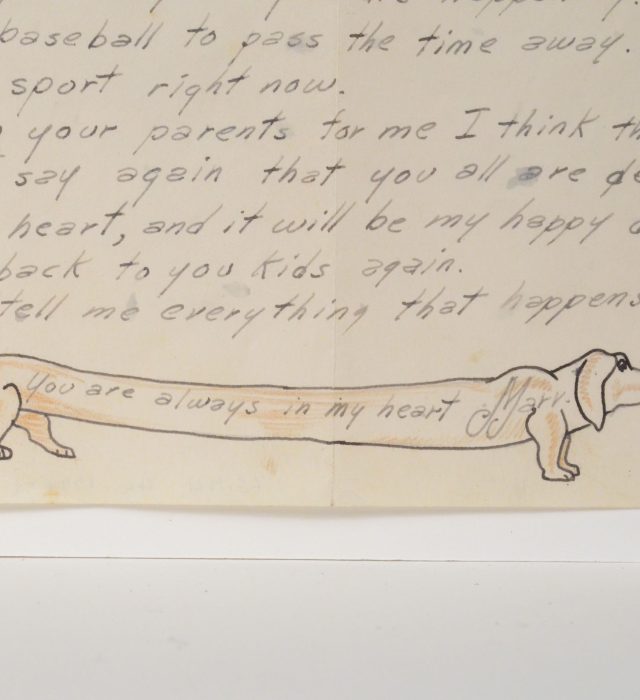 baseball to pass the time away.
sport right now.
your parents for me I think
say again that you all are
heart, and it will be my happy
back to you kids again.
tell me everything that happens
You are always in my heart